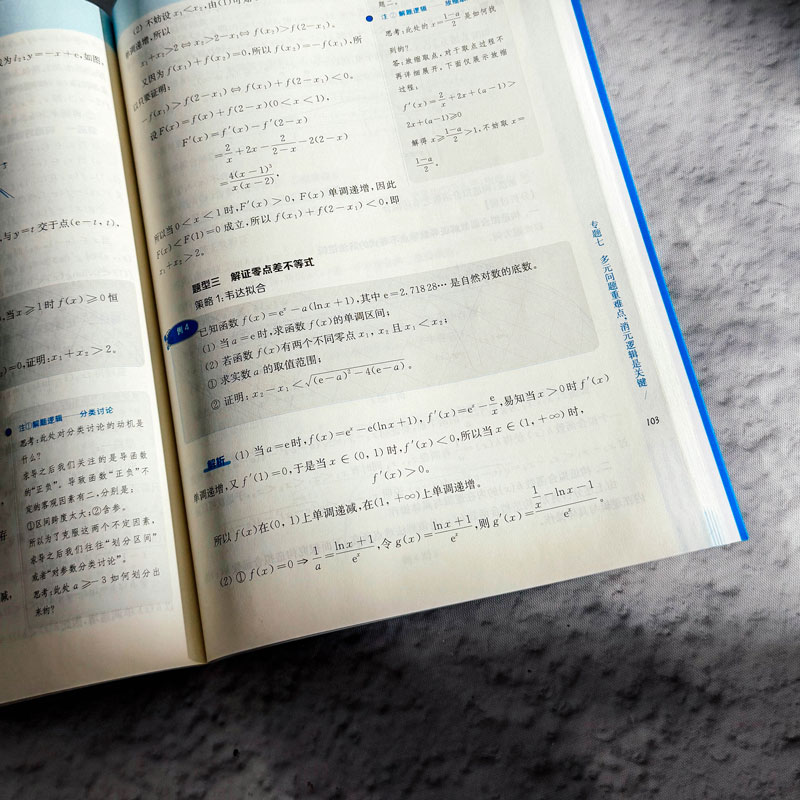 为 l₂:y=-x+e,如图,
与 y=t 交于点(e-t, t),
当 x≥1 时 f(x)≥0 恒
)=0,证明:x₁+x₂>2。
注①解题逻辑 分类讨论
思考:此处对分类讨论的动机是
什么?
求导之后我们关注的是导函数
的“正负”。导致函数“正负”不
定的客观因素有二,分别是:
①区间跨度太大;②含参。
所以为了克服这两个不定因素,
求导之后我们往往“划分区间”
或者“对参数分类讨论”。
思考:此处 a≥-3 如何划分出
来的?
(2) 不妨设 x₁<x₂,由(1)可知
单调递增,所以
x₁+x₂>2⇔x₂>2-x₁⇔f(x₂)>f(2-x₁)、
又因为 f(x₁)+f(x₂)=0,所以 f(x₂)=-f(x₁),所
以只要证明:
-f(x₁)>f(2-x₁)⇔f(x₁)+f(2-x₁)<0。
设 F(x)=f(x)+f(2-x)(0<x<1),
F′(x)=f′(x)-f′(2-x)
=2/x+2x-2/(2-x)-2(2-x)
=4(x-1)³/(x(x-2)),
所以当 0<x<1 时,F′(x)>0, F(x) 单调递增,因此
F(x)<F(1)=0 成立,所以 f(x₁)+f(2-x₁)<0,即
x₁+x₂>2。
题二。
注②解题逻辑
思考:此处的 x=(1-a)/2 是如何找
到的?
答:放缩取点,对于取点过程不
再详细展开,下面仅展示放缩
过程:
f′(x)=2/x+2x+(a-1)>
2x+(a-1)≥0
解得 x≥(1-a)/2>1,不妨取 x=
(1-a)/2。
题型三 解证零点差不等式
策略 1:韦达拟合
例4
已知函数 f(x)=eˣ-a(ln x+1),其中 e=2.71828…是自然对数的底数。
(1) 当 a=e 时,求函数 f(x)的单调区间;
(2) 若函数 f(x)有两个不同零点 x₁, x₂ 且 x₁<x₂;
① 求实数 a 的取值范围;
② 证明:x₂-x₁<√((e-a)²-4(e-a))。
解析 (1) 当 a=e 时,f(x)=eˣ-e(ln x+1), f′(x)=eˣ-e/x,易知当 x>0 时 f′(x)
单调递增,又 f′(1)=0,于是当 x∈(0, 1)时,f′(x)<0,所以当 x∈(1, +∞)时,
f′(x)>0。
所以 f(x)在(0, 1)上单调递减,在(1, +∞)上单调递增。
(2) ① f(x)=0⇒1/a=(ln x+1)/eˣ,令 g(x)=(ln x+1)/eˣ,则 g′(x)=(1/x-ln x-1)/eˣ。
专题七 多元问题重难点,消元逻辑是关键
103